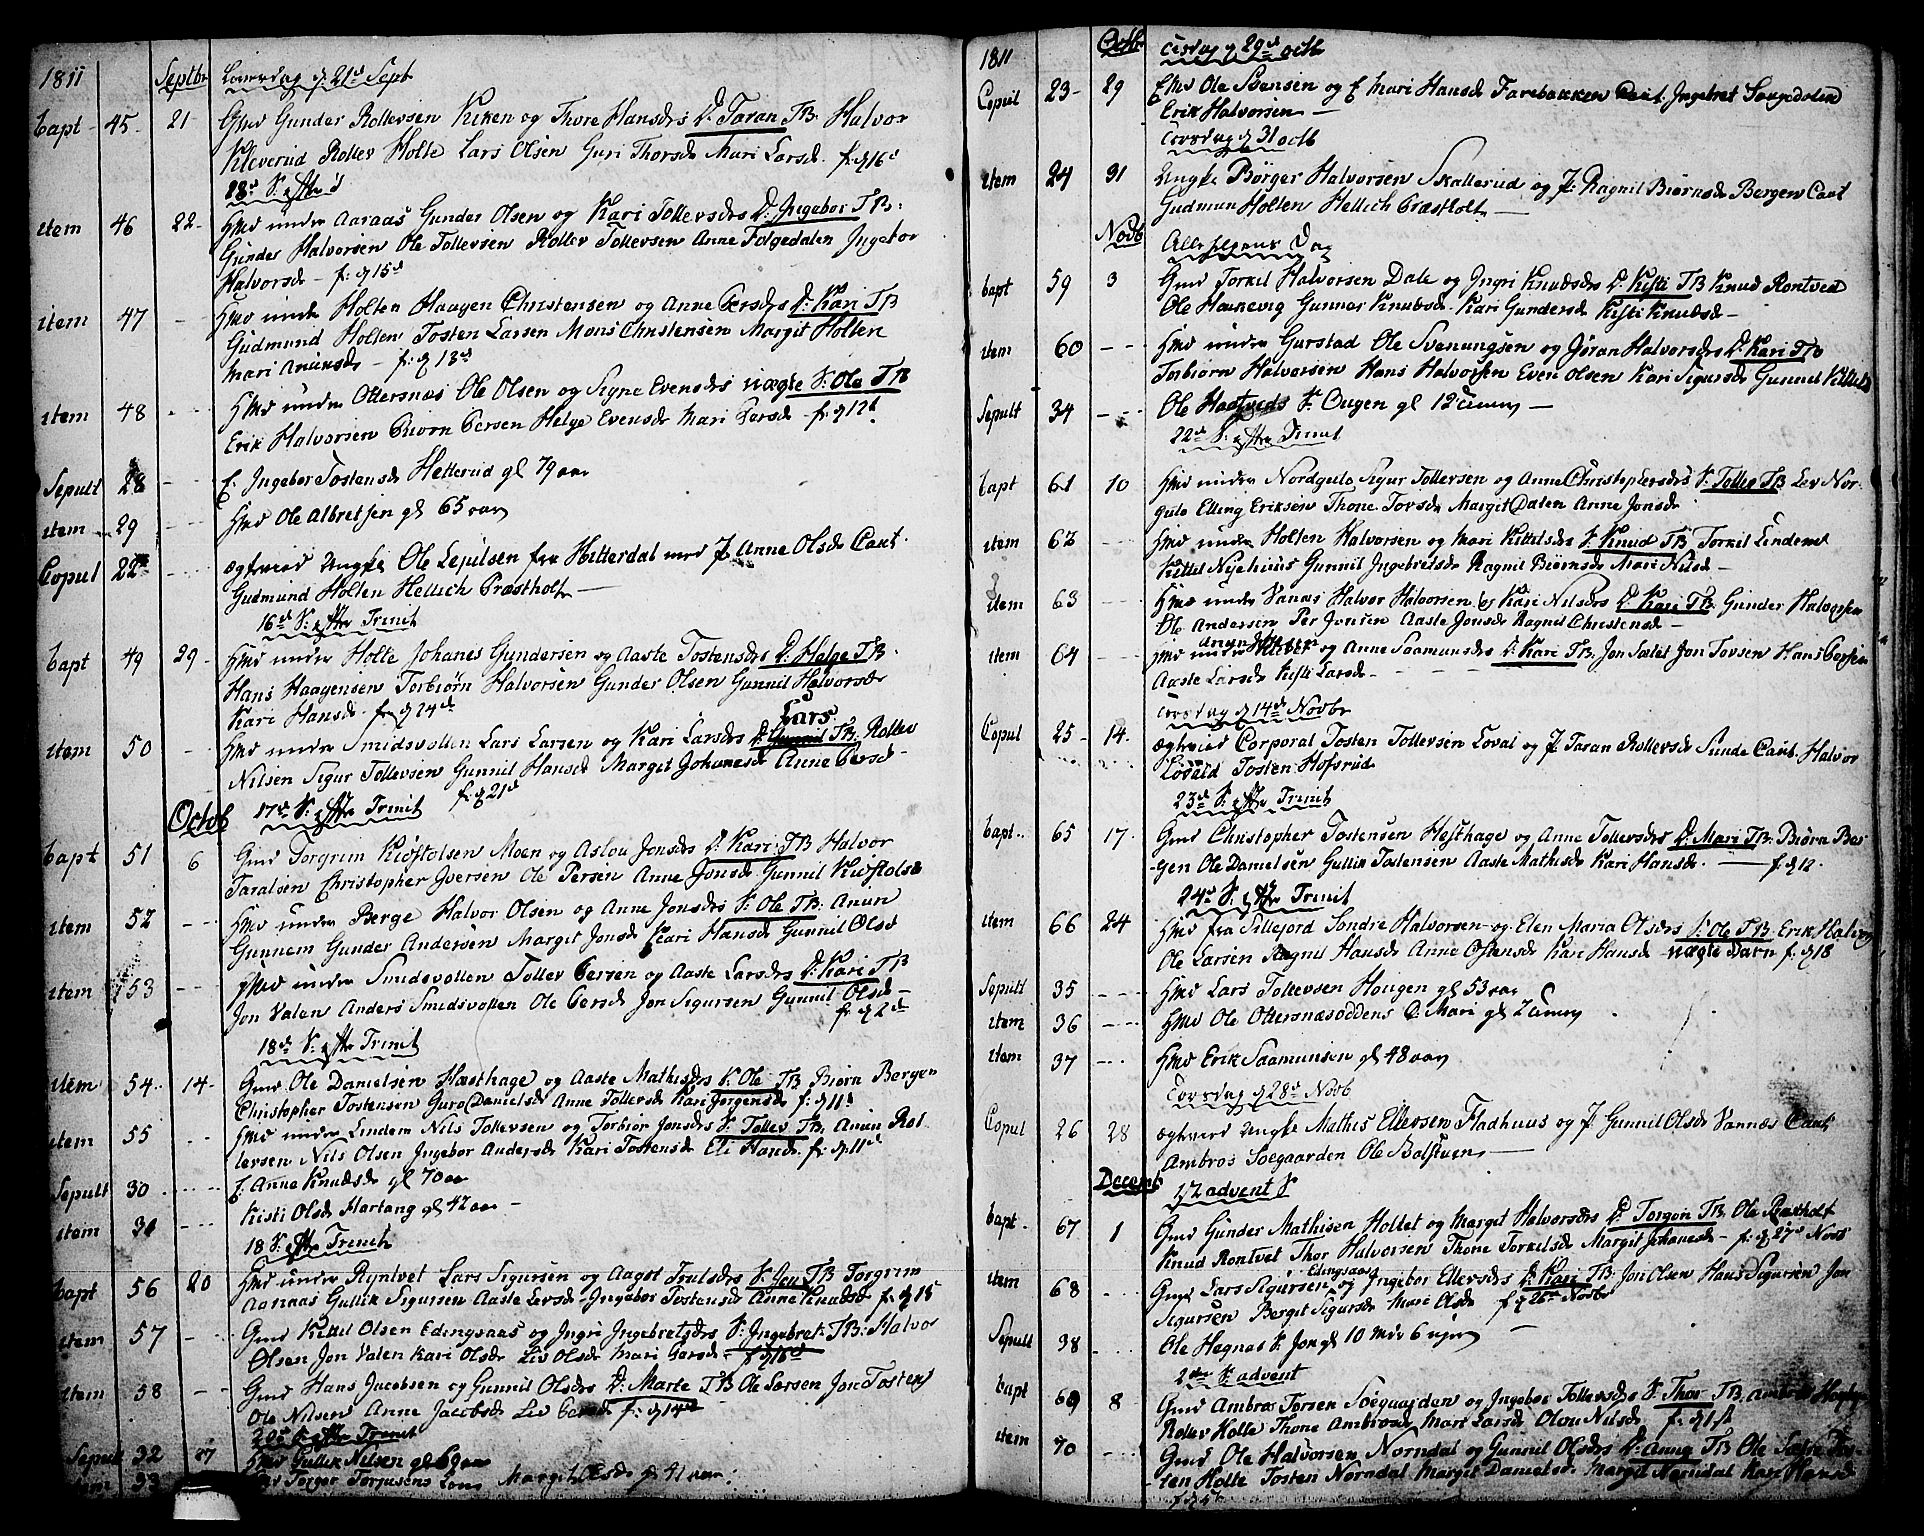 1811 Septbr Løverdag d. 21d Sept
bapt 45 21 Gmd Gunder Rollevsen Kiken og Thore Hansdrs D. Taran TB. Halvor
Kleverud Rollev Holte Lars Olsen Guri Thorsd Mari Larsd. f. d 16d
item 46 22 Hmd under Aaraas Gunder Olsen og Kari Tollevsdrs D. Ingebor TB.
Gunder Halvorsen Ole Tollevsen Rollev Tollevsen Anne Folgedalen Ingebor
Halvorsd - f. d 15d
item 47 Hmd under Holten Haagen Christensen og Anne Persdrs D. Kari TB
Gudmund Holten Tosten Larsen Mons Christensen Margit Holten
Mari Amunsd - f. d 13d
item 48 Hmd under Ottersnæs Ole Olsen og Signe Evensdrs uægte S. Ole TB
Erik Halvorsen Biørn Persen Helge Evensd Mari Larsd - f. d 12d
Sepult 28 E. Ingebor Tostensd Hetterud gl 79 aar
item 29 Hmd Ole Albretsen gl 65 aar
Copul 22 Ungke Ole Lejulsen fra Hitterdal med P Anne Olsd Caut.
Gudmund Holten Hellich Præstholt
16d S. efter Trinit
bapt 49 29 Hmd under Holte Johanes Gundersen og Aaste Tostensdrs D. Helge TB.
Hans Haagensen Torbiørn Halvorsen Gunder Olsen Gunnil Halvorsd
Kari Hansd f. d 24d
Lars
item 50 Hmd under Smidsvollen Lars Larsen og Kari Larsdrs D. Gunnil TB. Rollev
Nilsen Sigur Tollevsen Gunnil Hansd Margit Johanesd Anne Persd
f. d 21d
Octob 17d S. efter Trinit
bapt 51 6 Gmd Torgrim Kiøstolsen Moen og Aslou Jonsdrs D. Kari TB Halvor
Taralsen Christopher Iversen Ole Persen Anne Jonsd Gunnil Kiøstolsd
item 52 Hmd under Berge Halvor Olsen og Anne Jonsdrs S. Ole TB. Amun
Gunnem Gunder Andersen Margit Jonsd Kari Hansd Gunnil Olsd
item 53 Hmd under Smidsvollen Tollev Persen og Aaste Larsdrs D. Kari TB
Jon Valen Anders Smidsvollen Ole Persd Jon Sigursen Gunnil Olsd
f. d 2d
18d S. efter Trinit
item 54 14 Gmd Ole Danielsen Hæsthage og Aaste Mathisdrs S. Ole TB Biørn Bergen
Christopher Tostensen Guro Danielsd Anne Tollevsd Kari Jørgensd f. d 11d
item 55 Hmd under Lindem Nils Tollevsen og Torbiør Jonsdrs S. Tollev TB. Amun Rol
levsen Nils Olsen Ingebor Andersd Kari Tostensd Eli Hansd. f. d 11d
Sepult 30 E. Anne Knudsd gl 70 aar
item 31 Kisti Olsd Hartang gl 42 aar
18 S. efter Trinit
bapt 56 20 Hmd under Ryntvet Lars Sigursen og Aagot Trulsdrs S. Jon TB Torgrim
Aaraas Gullik Sigursen Aaste Larsd Ingebor Tostensd Anne Knudsd f. d 15
item 57 Gmd Kittil Olsen Edingsaas og Ingri Ingebretsdrs S. Ingebret TB. Halvor
Olsen Jon Valen Kari Olsd Liv Olsd Mari Larsd - f. d 16d
item 58 Gmd Hans Jacobsen og Gunnil Olsdrs D. Marte TB Ole Larsen Jon Tosten
Ole Nilsen Anne Jacobsd Liv Persd f. d 14d
20d S. efter Trinit
Sepult 32 27 Hmd Gullik Nilsen gl 69 aar
item 33 Torger Torjusens Kone Margit Olsd gl 41 aar.
1811 Octb Tisdag d. 29d Octb
Copul 23 29 Emd Ole Svensen og E Mari Hansd Farebakken Caut. Ingebret Saugedalen
Erik Halvorsen
Torsdag d 31 octb
item 24 31 Ungke Børger Halvorsen Skallerud og P. Ragnil Biørnsd Bergen Caut
Gudmun Holten Hellich Præstholt
Novb Allehelgens Dag
bapt 59 3 Gmd Torkil Halvorsen Dale og Ingri Knudsdrs D. Kisti TB Knud Rontved
Ole Haukevig Gunnar Knudsd Kari Gundersd Kisti Knudsd
item 60 Hmd under Gurstad Ole Svenungsen og Jøran Halvorsdrs D. Kari TB
Torbiørn Halvorsen Hans Halvorsen Even Olsen Kari Sigursd Gunnil Kittilsd
Sepult 34 Ole Haatveds S. Ougen gl 12 uger
22d S. efter Trinit
bapt 61 10 Hmd under Nordgulo Sigur Tollevsen og Anne Christophersdrs S. Tollev TB Lev Nor
gulo Elling Eriksen Thone Torsd Margit Dalen Anne Jonsd
item 62 Hmd under Holten Halvorsen og Mari Kittilsdrs S. Knud TB Torkil Lindem
Kittel Nyehuus Gunnil Ingebretsd Ragnil Biørnsd Mari Nilsd
item 63 Hmd under Vanæs Halvor Halvorsen og Kari Nilsdrs D. Kari TB. Gunder Halvorsen
Ole Andersen Per Jonsen Aaste Jonsd Ragnil Christensd
item 64 Hmd under og Anne Saamunsdrs D. Kari TB. Jon Sætet Jon Torsen Hans Persen
Aaste Larsd Kisti Larsd
Torsdag d 14d Novbr
Copul 25 14 Corporal Tosten Tollevsen Loval og P. Taran Rollevsd Sunde Caut. Halvor
Løvald Tosten Hofsrud
23d S. efter Trinit
bapt 65 17 Gmd Christopher Tostensen Hesthage og Anne Tollevsdrs D. Mari TB. Biørn Ber
gen Ole Danielsen Gullik Tostensen Aaste Mathisd Kari Hansd. f. d 12
24d S. eft Trinit
item 66 24 Hmd fra Sillejord Sondre Halvorsen og Elen Maria Olsdrs S. Ole TB. Erik Halvors
Ole Larsen Ragnil Hansd Anne Ostensd Kari Hansd uægte Barn f. d 18
Sepult 35 Hmd Lars Tollevsen Hougen gl 53 aar
item 36 Hmd Ole Ottersnæsoddens D. Mari gl 2 uger
item 37 Hmd Erik Saamunsen gl 48 aar
Torsdag d 28d Novb
Copul 26 28 Ungke Mathis Ellevsen Fladhuus og P. Gunnil Olsd Vannæs Caut
Ambros Soegaarden Ole Bolstuen
Decemb 1 advent S
bapt 67 1 Gmd Gunder Mathisen Holtet og Margit Halvorsdrs D. Torgon TB. Ole Præstholt
Knud Rontvet Thor Halvorsen Thone Torkelsd Margit Johanesd - f. d 27d Novb
item 68 Gmd Lars Sigursen Edingsaas og Ingebor Ellevsdrs D. Kari TB. Jon Olsen Hans Sigursen Jon
Sigursen Bergit Sigursd Mari Olsd f. d 26d Novbr
Sepult 38 Ole Hegnas S. Jon gl 10 6 uger
2den S. advent
bapt 69 8 Gmd Ambros Torsen Soegaarden og Ingebor Tollevsdrs S. Thor TB. Ambros
Rollev Holte Thone Ambrosd Mari Larsd Olou Nilsd f. d 1d
item 70 Gmd Ole Halvorsen Norndal og Gunnil Olsdrs D. Anne TB Ole
sen Holte Tosten Norndal Margit Danielsd Margit Norndal Kari Hansd